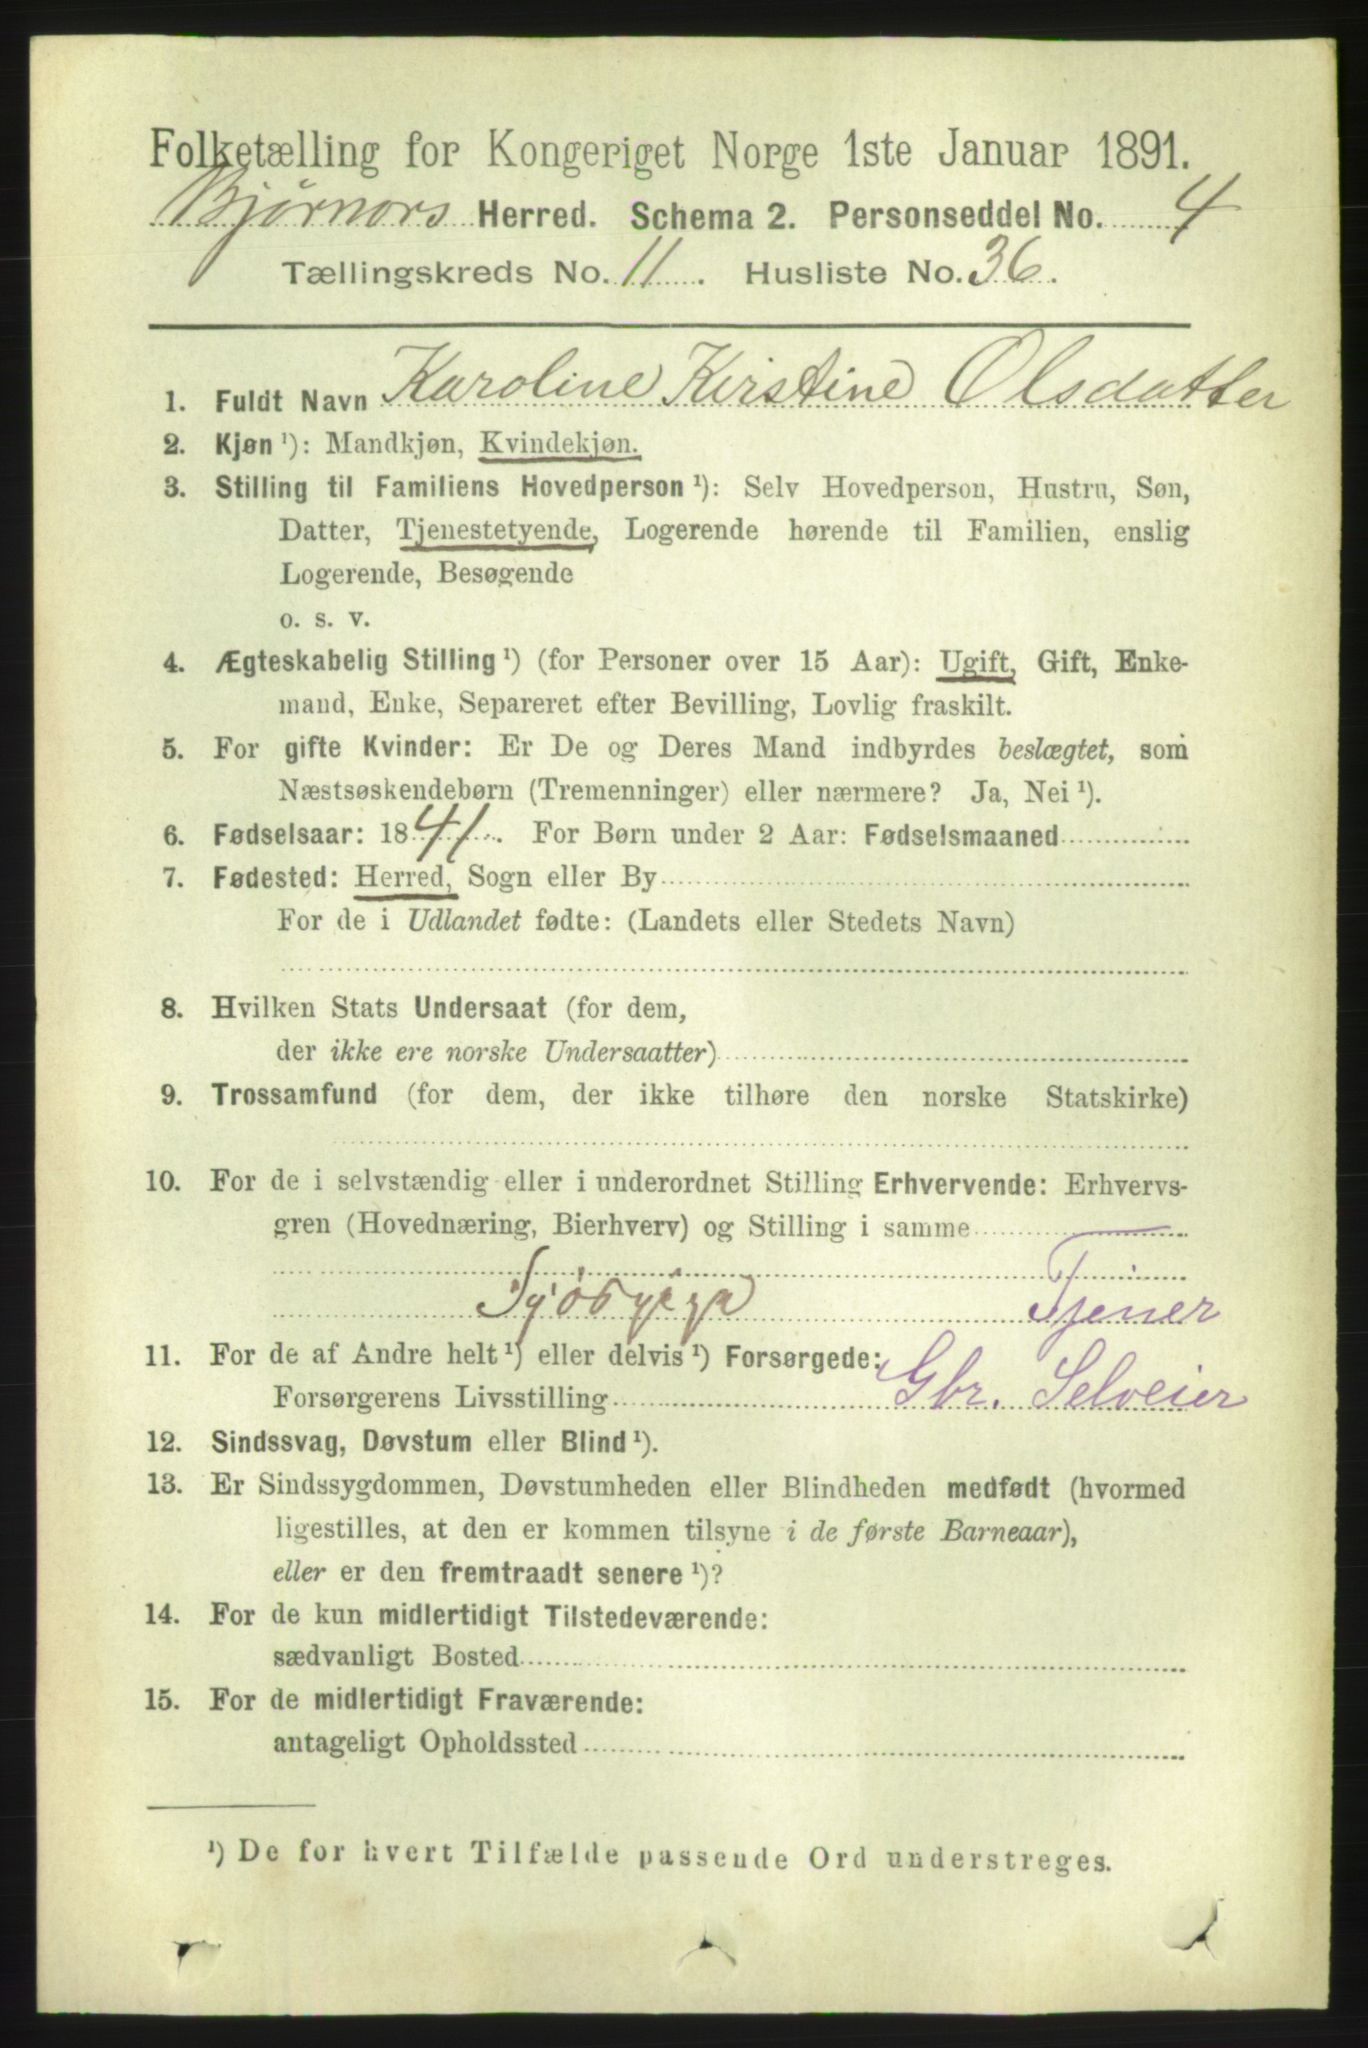 Folketælling for Kongeriget Norge 1ste Januar 1891.
Bjørnørs Herred. Schema 2. Personseddel No. 4
Tællingskreds No. 11. Husliste No. 36.
1. Fuldt Navn Karoline Kirstine Olsdatter
2. Kjøn ¹): Mandkjøn, Kvindekjøn.
3. Stilling til Familiens Hovedperson ¹): Selv Hovedperson, Hustru, Søn,
Datter, Tjenestetyende, Logerende hørende til Familien, enslig
Logerende, Besøgende
o. s. v.
4. Ægteskabelig Stilling ¹) (for Personer over 15 Aar): Ugift, Gift, Enke-
mand, Enke, Separeret efter Bevilling, Lovlig fraskilt.
5. For gifte Kvinder: Er De og Deres Mand indbyrdes beslægtet, som
Næstsøskendebørn (Tremenninger) eller nærmere? Ja, Nei ¹).
6. Fødselsaar: 1841. For Børn under 2 Aar: Fødselsmaaned
7. Fødested: Herred, Sogn eller By
For de i Udlandet fødte: (Landets eller Stedets Navn)
8. Hvilken Stats Undersaat (for dem,
der ikke ere norske Undersaatter)
9. Trossamfund (for dem, der ikke tilhøre den norske Statskirke)
10. For de i selvstændig eller i underordnet Stilling Erhvervende: Erhvervs-
gren (Hovednæring, Bierhverv) og Stilling i samme
Tjener
11. For de af Andre helt ¹) eller delvis ¹) Forsørgede:
Forsørgerens Livsstilling Gbr. Selveier
12. Sindssvag, Døvstum eller Blind ¹).
13. Er Sindssygdommen, Døvstumheden eller Blindheden medfødt (hvormed
ligestilles, at den er kommen tilsyne i de første Barneaar),
eller er den fremtraadt senere ¹)?
14. For de kun midlertidigt Tilstedeværende:
sædvanligt Bosted
15. For de midlertidigt Fraværende:
antageligt Opholdssted
¹) De for hvert Tilfælde passende Ord understreges.